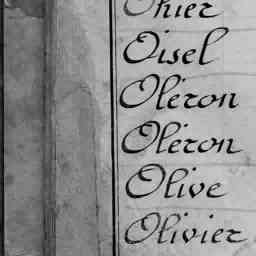 Ohier
Oisel
Oléron
Oléron
Olive
Olivier